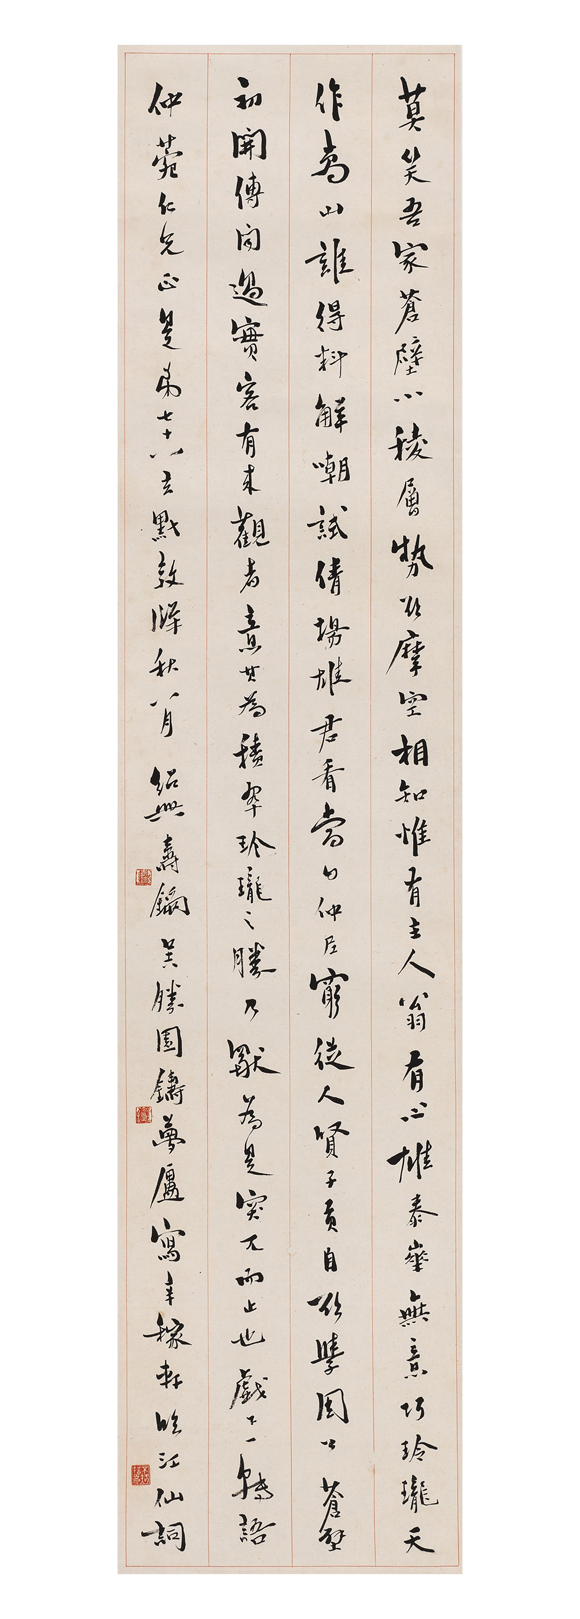 莫笑吾家蒼壁小稜層勢欲摩空相知惟有主人翁有心雄泰華無意巧玲瓏天
作高山誰得料解嘲試倩揚雄君看當日仲尼窮從人賢子貢自欲學周公蒼壁
初開傳聞過實客有來觀者意其為積翠玲瓏之勝乃獨為是突兀而止也戲下一轉語
仲仁兄正是弟七十八玄黓敦牂秋八月 紹興壽鑈勝園鑄夢廬寫辛稼軒臨江仙詞